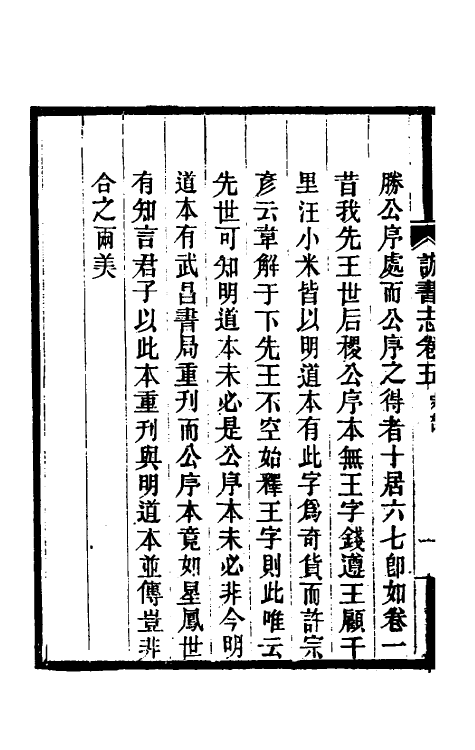 訪書志卷五
一
勝公序處而公序之得者十居六七卽如卷一
昔我先王世后稷公序本無王字錢遵王顧千
里汪小米皆以明道本有此字爲奇貨而許宗
彥云韋解于下先王不空始釋王字則此唯云
先世可知明道本未必是公序本未必非今明
道本有武昌書局重刋而公序本竟如星鳳世
有知言君子以此本重刋與明道本並傳豈非
合之兩美